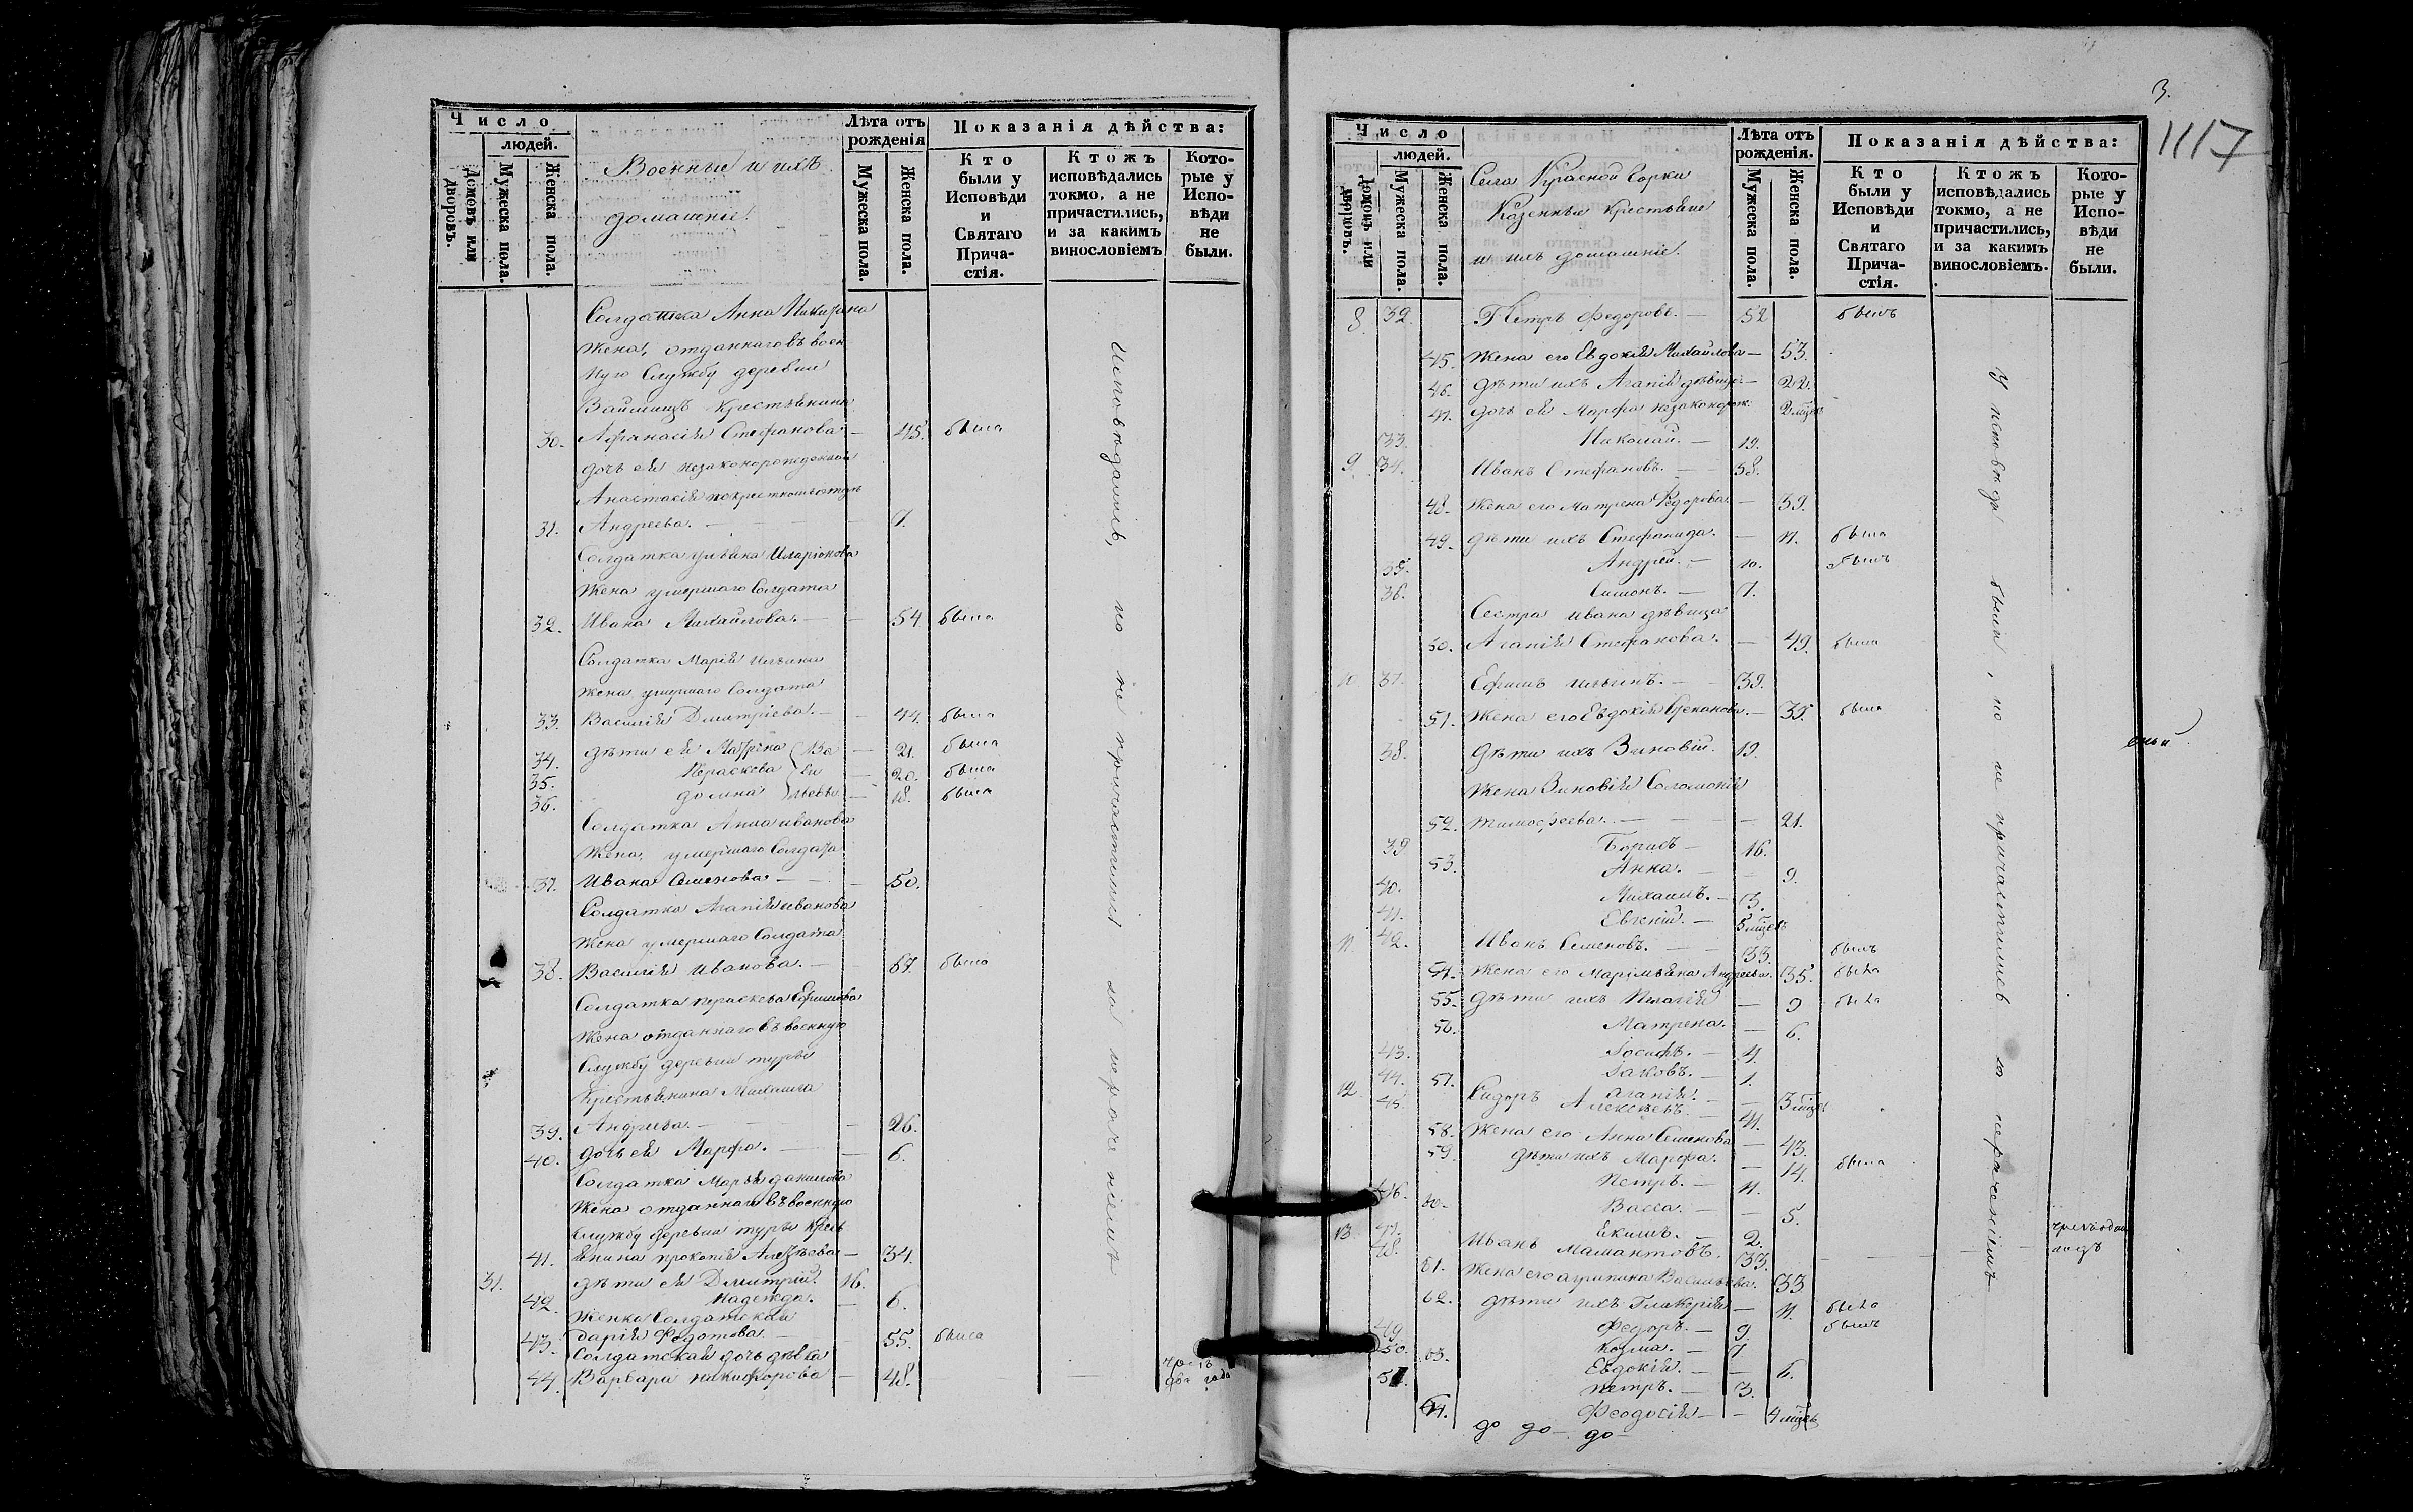 Число
людей.
Домовъ или дворовъ.
Мужеска пола.
Женска пола.
Военные и ихъ
домашніе.
Лѣта отъ рожденія
Мужеска пола.
Женска пола.
Показанія дѣйства:
Кто были у Исповѣди и Святаго Прича-стія.
Ктожъ исповѣдались токмо, а не причастились, и за какимъ винословіемъ
Кото-рые у Испо-вѣди не были.
Солдатка Анна
Жена, отданнаго въ воен
ную Службу деревни
Крестьянина
30. Афанасія Стефанова — 45. была
дочь ея незаконорожденная
Анастасія
31. Андреева. — 7.
Солдатка Ульяна Иларіонова
Жена умершаго Солдата
32. Ивана Михайлова. — 54. была
Солдатка Марія Ильина
Жена умершаго Солдата
33. Василія Дмитріева. — 44. была
34. дѣти ея Матрена — 21. была
35. Параскева — 20. была
36. Домна — 18. была
Солдатка Анна Иванова
Жена, умершаго Солдата
37. Ивана Семенова. — 50.
Солдатка Агапія Иванова
Жена умершаго Солдата
38. Василія Иванова. — 67. была
Солдатка Параскева Ефимова
Жена отданнаго въ военную
Службу деревни Турьи
Крестьянина Михаила
39. Андреева. — 26.
40. дочь ея Марфа. — 6.
Солдатка Марья Данилова
Жена отданнаго въ военную
Службу деревни Турьи Крестъ
41. янина Прокопія — 34.
31. дѣти ея Дмитрій. 16.
42. Надежда. — 6.
Женка Солдатская
43. Дарія Федотова. — 55. была
Солдатская дочь дѣвка
44. Варвара Никифорова — 48.
два года
исповѣдались, но не причастились за нераченіемъ
3.
1117
Число
людей.
Домовъ или дворовъ.
Мужеска пола.
Женска пола.
Села Красной Горки
Казенные Крестьяне
и ихъ домашніе.
Лѣта отъ рожденія.
Мужеска пола.
Женска пола.
Показанія дѣйства:
Кто были у Исповѣди и Святаго Прича-стія.
Ктожъ исповѣдались токмо, а не причастились, и за какимъ винословіемъ.
Кото-рые у Испо-вѣди не были.
8. 32. Петръ Федоровъ. — 52 былъ
45. Жена его Евдокія Михайлова — 53.
46. дѣти ихъ Агапія дѣвица — 22.
47. дочь ея Марфа незаконорож.
33. Николай. — 19.
9. 34. Иванъ Стефановъ. — 38.
48. Жена его Матрена Федорова — 39.
49. дѣти ихъ Стефанида. — 11. была
35. Андрей. — 10. былъ
36. Симонъ. — 7.
Сестра Ивана дѣвица
50. Агапія Стефанова. — 49. была
10. 37. Ефимъ Ильинъ. — 39.
51. Жена его Евдокія — 35. была
38. Дѣти ихъ Зиновій. 19.
Жена Зиновія Соломонія
52. Тимофеева. — 21.
39 Борисъ — 16.
53. Анна. — 9.
40. Михаилъ. — 3.
41. Евгеній. — 5 мцев
11. 42. Иванъ Семеновъ. — 33. былъ
54. Жена его Маріамьяна Андреева. 35. была
55. Дѣти ихъ Пелагія — 9 была
56. Матрена. — 6.
43. Іосифъ. — 4.
44. Іаковъ. — 1.
57. Агапія. — 3 мцев
12. 45. Сидоръ Алексѣевъ. — 41.
58. Жена его Анна Семенова — 43.
59. дѣти ихъ Марфа. — 14. была
46. Петръ. — 11.
60. Васса. — 5.
47. Екимъ. — 2.
13. 48. Иванъ Мамантовъ. 33.
годъ
61. Жена его Агрипина Васильева. 33
62. дѣти ихъ Гликерія — 11. была
49. Федоръ. — 9. былъ
50. Козма. — 7
63. Евдокія. — 6.
51. Петръ. — 3.
64. Феодосія — 4 мцев
до до — до —
У исповѣди были, но не причастились за нераченіемъ